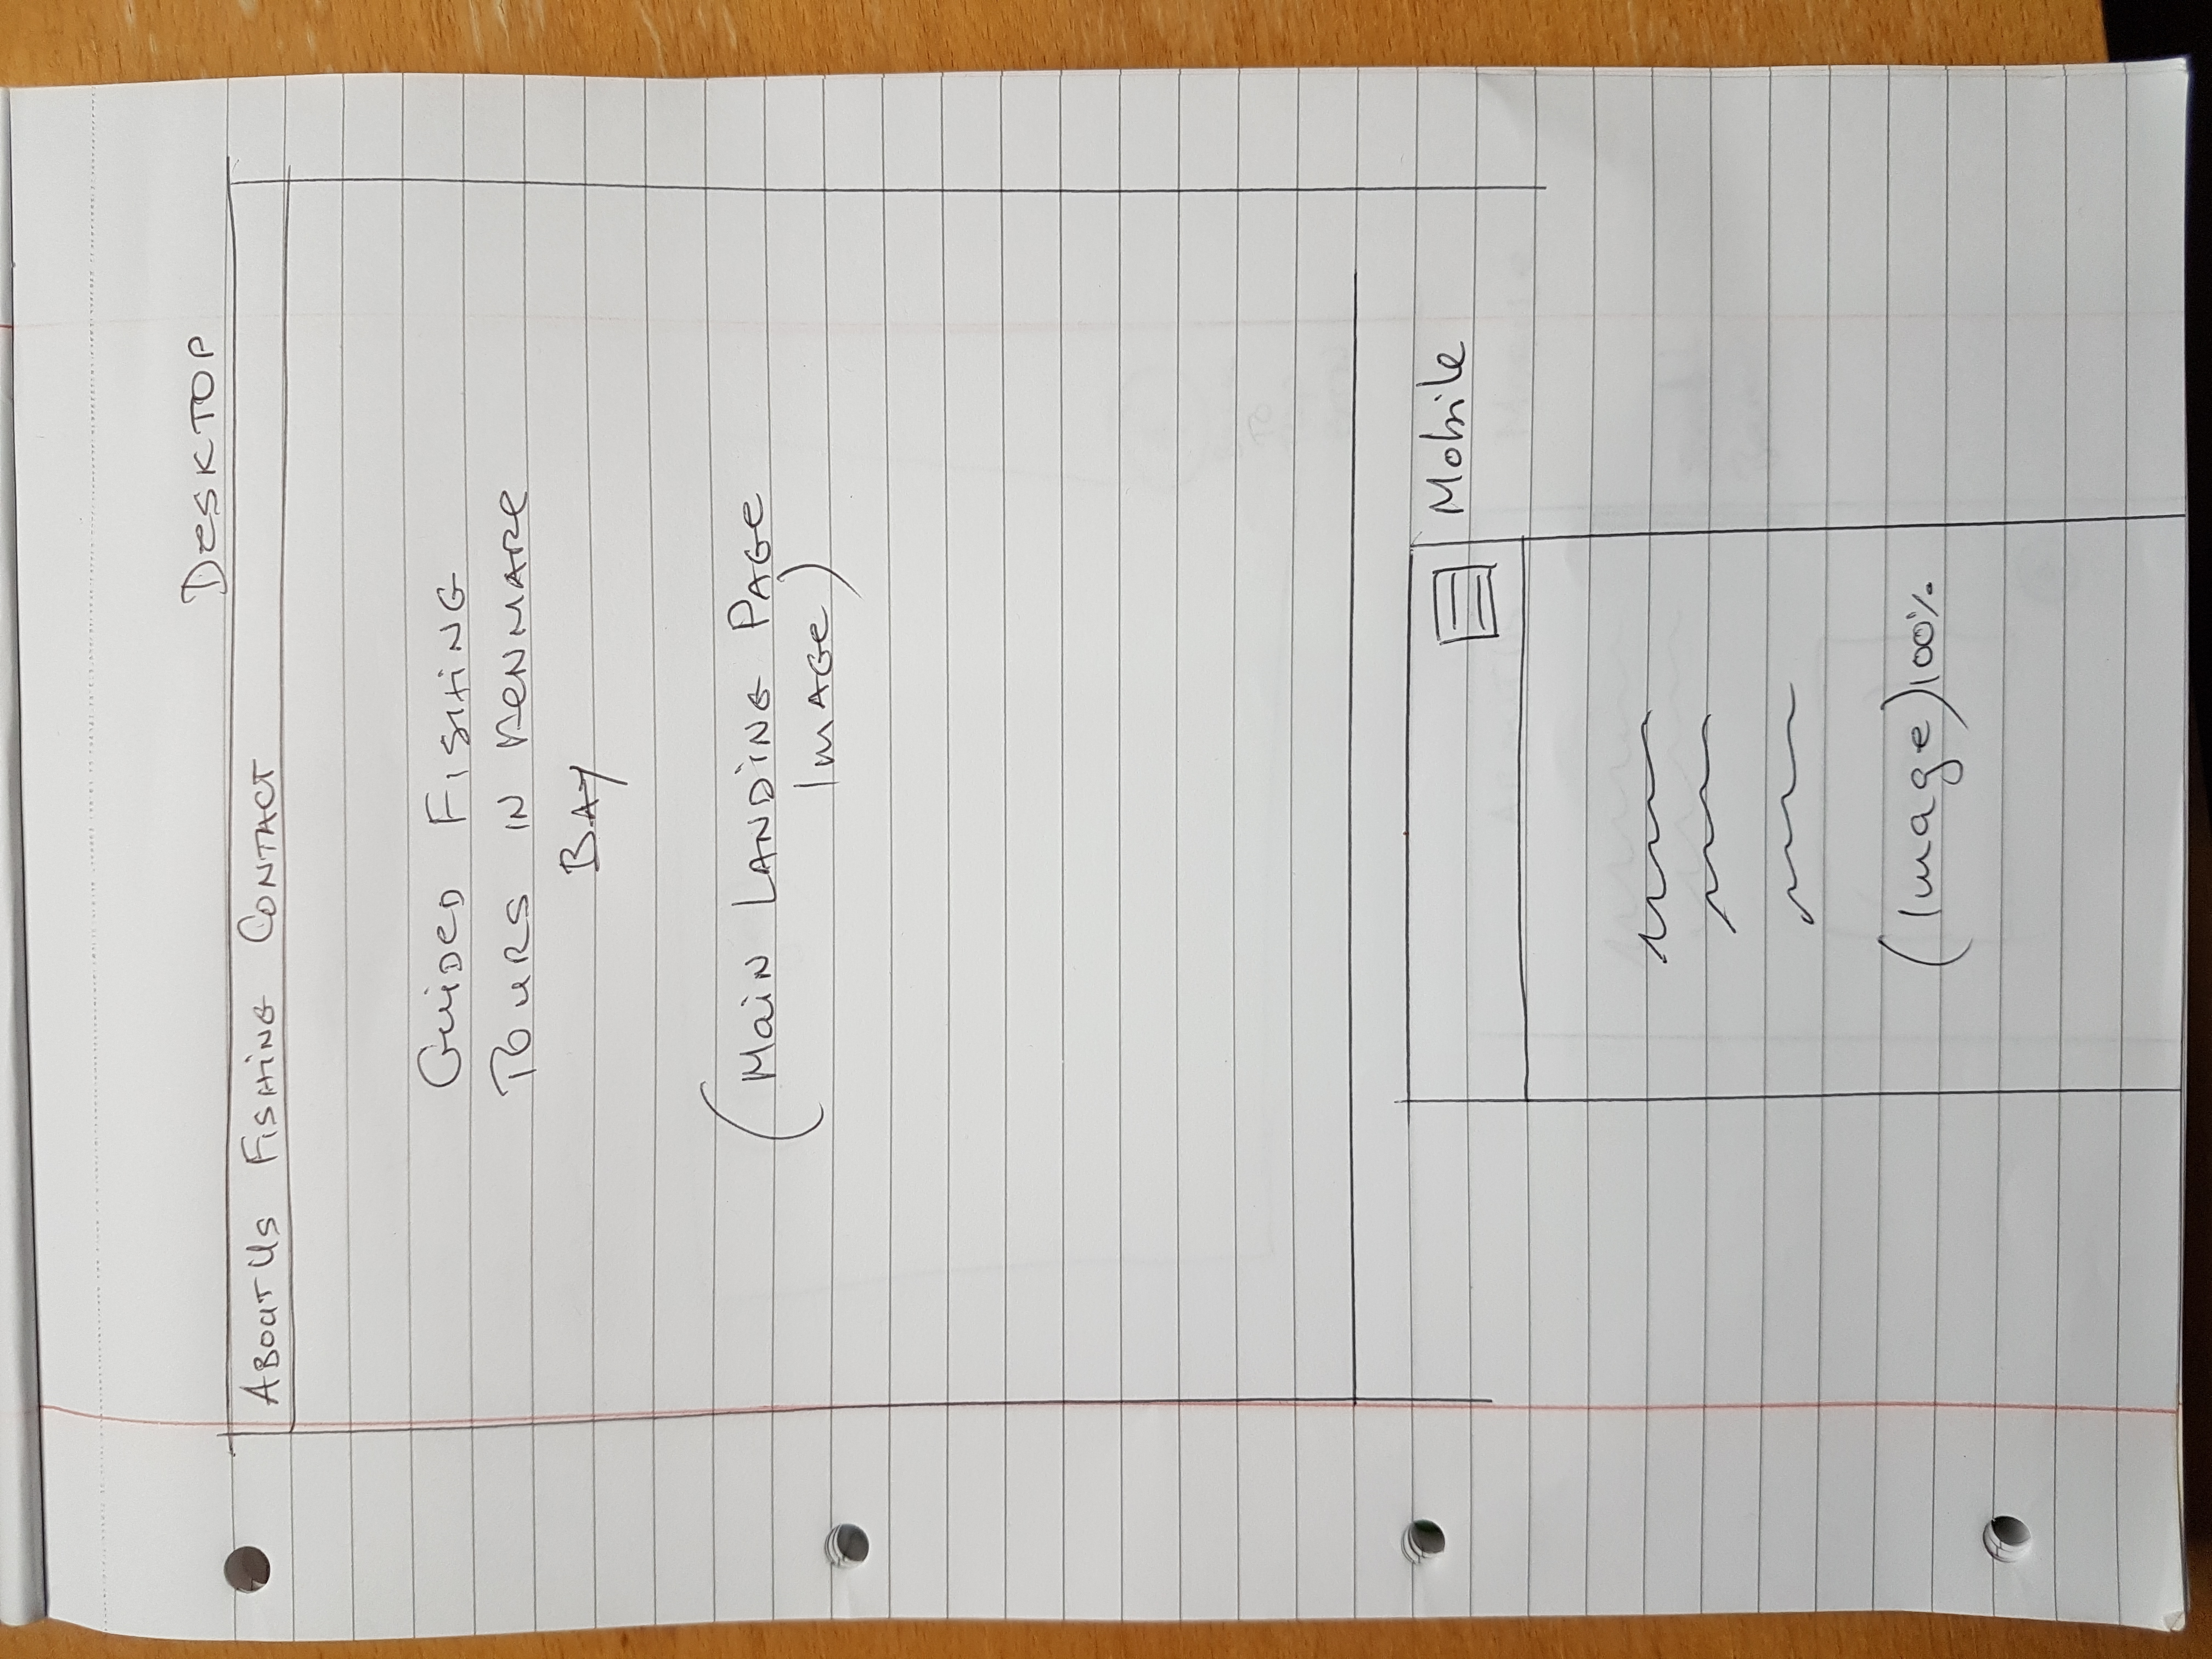 DESKTOP
ABOUT US FISHING CONTACT
GUIDED FISHING
TOURS IN KENMARE
BAY
(MAIN LANDING PAGE
IMAGE)
Mobile
(Image) 100%